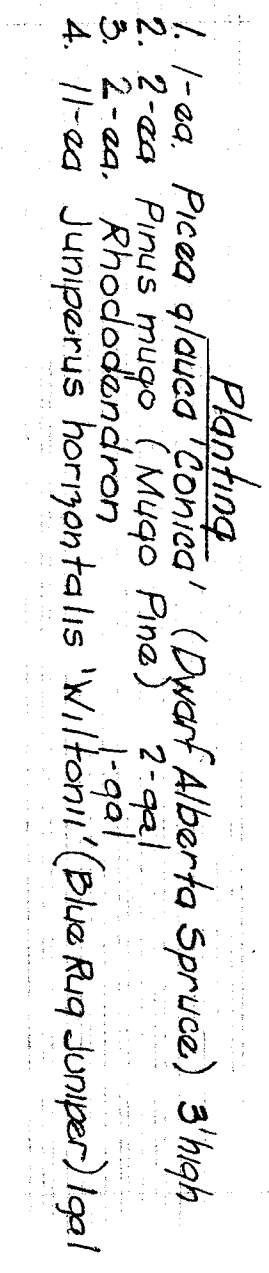 Planting
1. 1-ea. Picea glauca 'Conica' (Dwarf Alberta Spruce) 3' high
2. 2-ea Pinus mugo (Mugo Pine) 2-gal
3. 2-ea. Rhododendron 1-gal
4. 11-ea Juniperus horizontalis 'Wiltonii' (Blue Rug Juniper) 1gal